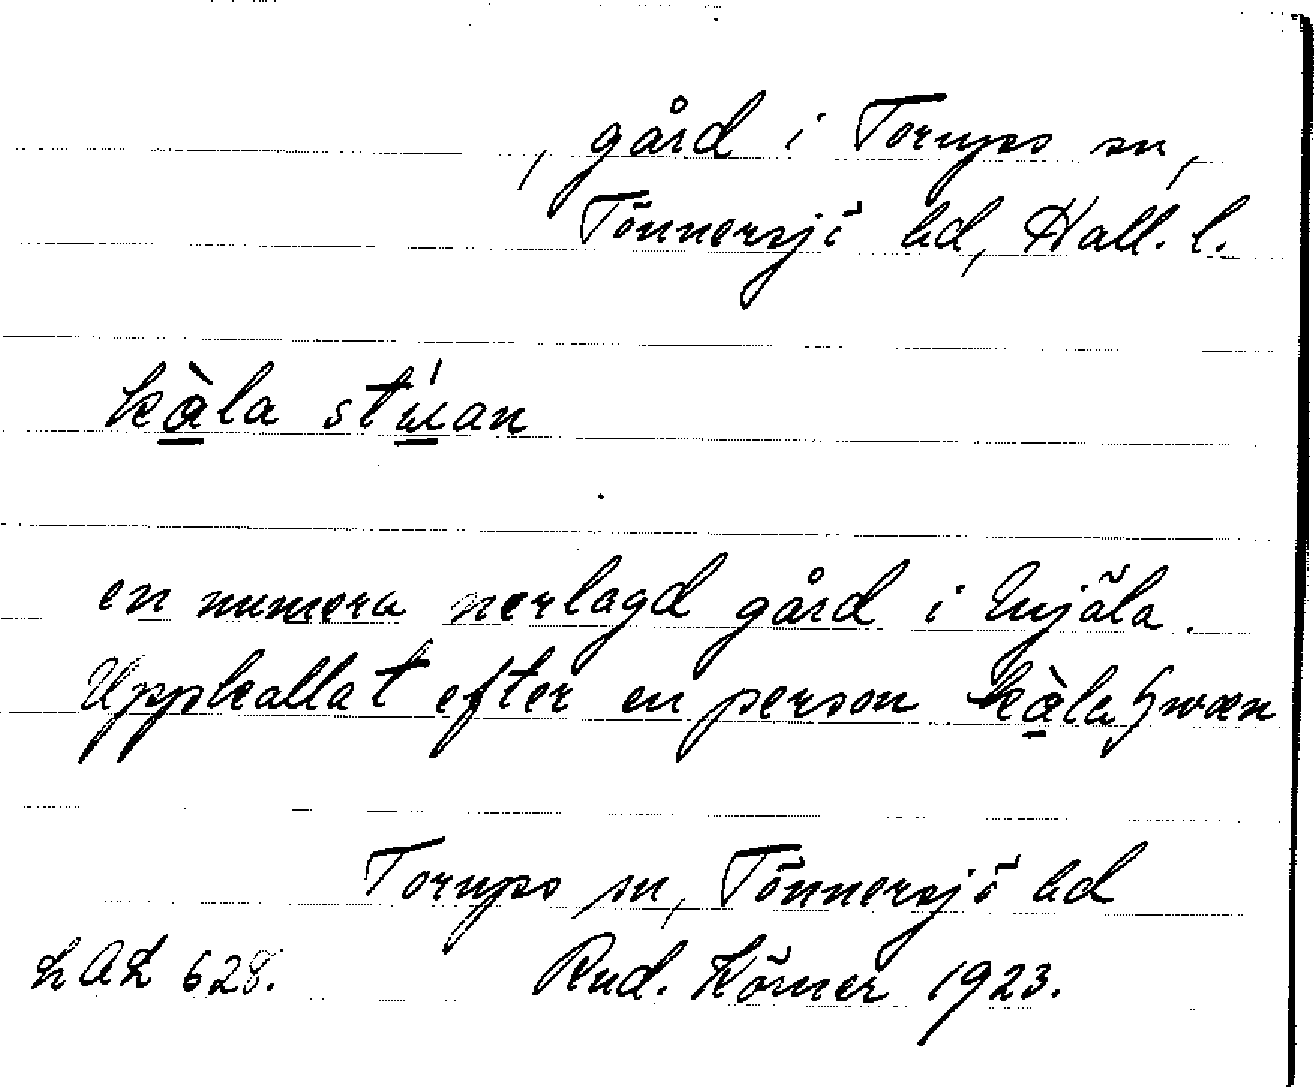 , gård i Torups sn,
Tönnersjö hd, Hall. l.
kàla stúan
en numera nerlagd gård i Mjäla.
Uppkallat efter en person kàla Swæn
Torups sn, Tönnersjö hd
LAL 628. Rud. Körner 1923.